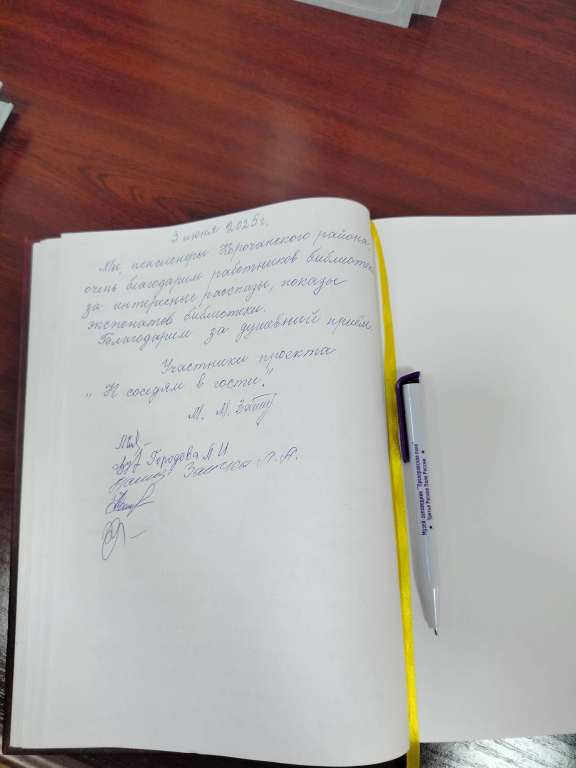 3 июня 2025г.
Мы, пенсионеры Корочанского района
очень благодарим работников библиотеки
за интересные рассказы, показы
экспонатов библиотеки.
Благодарим за душевный приём
Участники проекта
"К соседям в гости."
М. М.
Городова Л И
Л. А.
Музей-заповедник "Прохоровское поле"
Третье Ратное Поле России